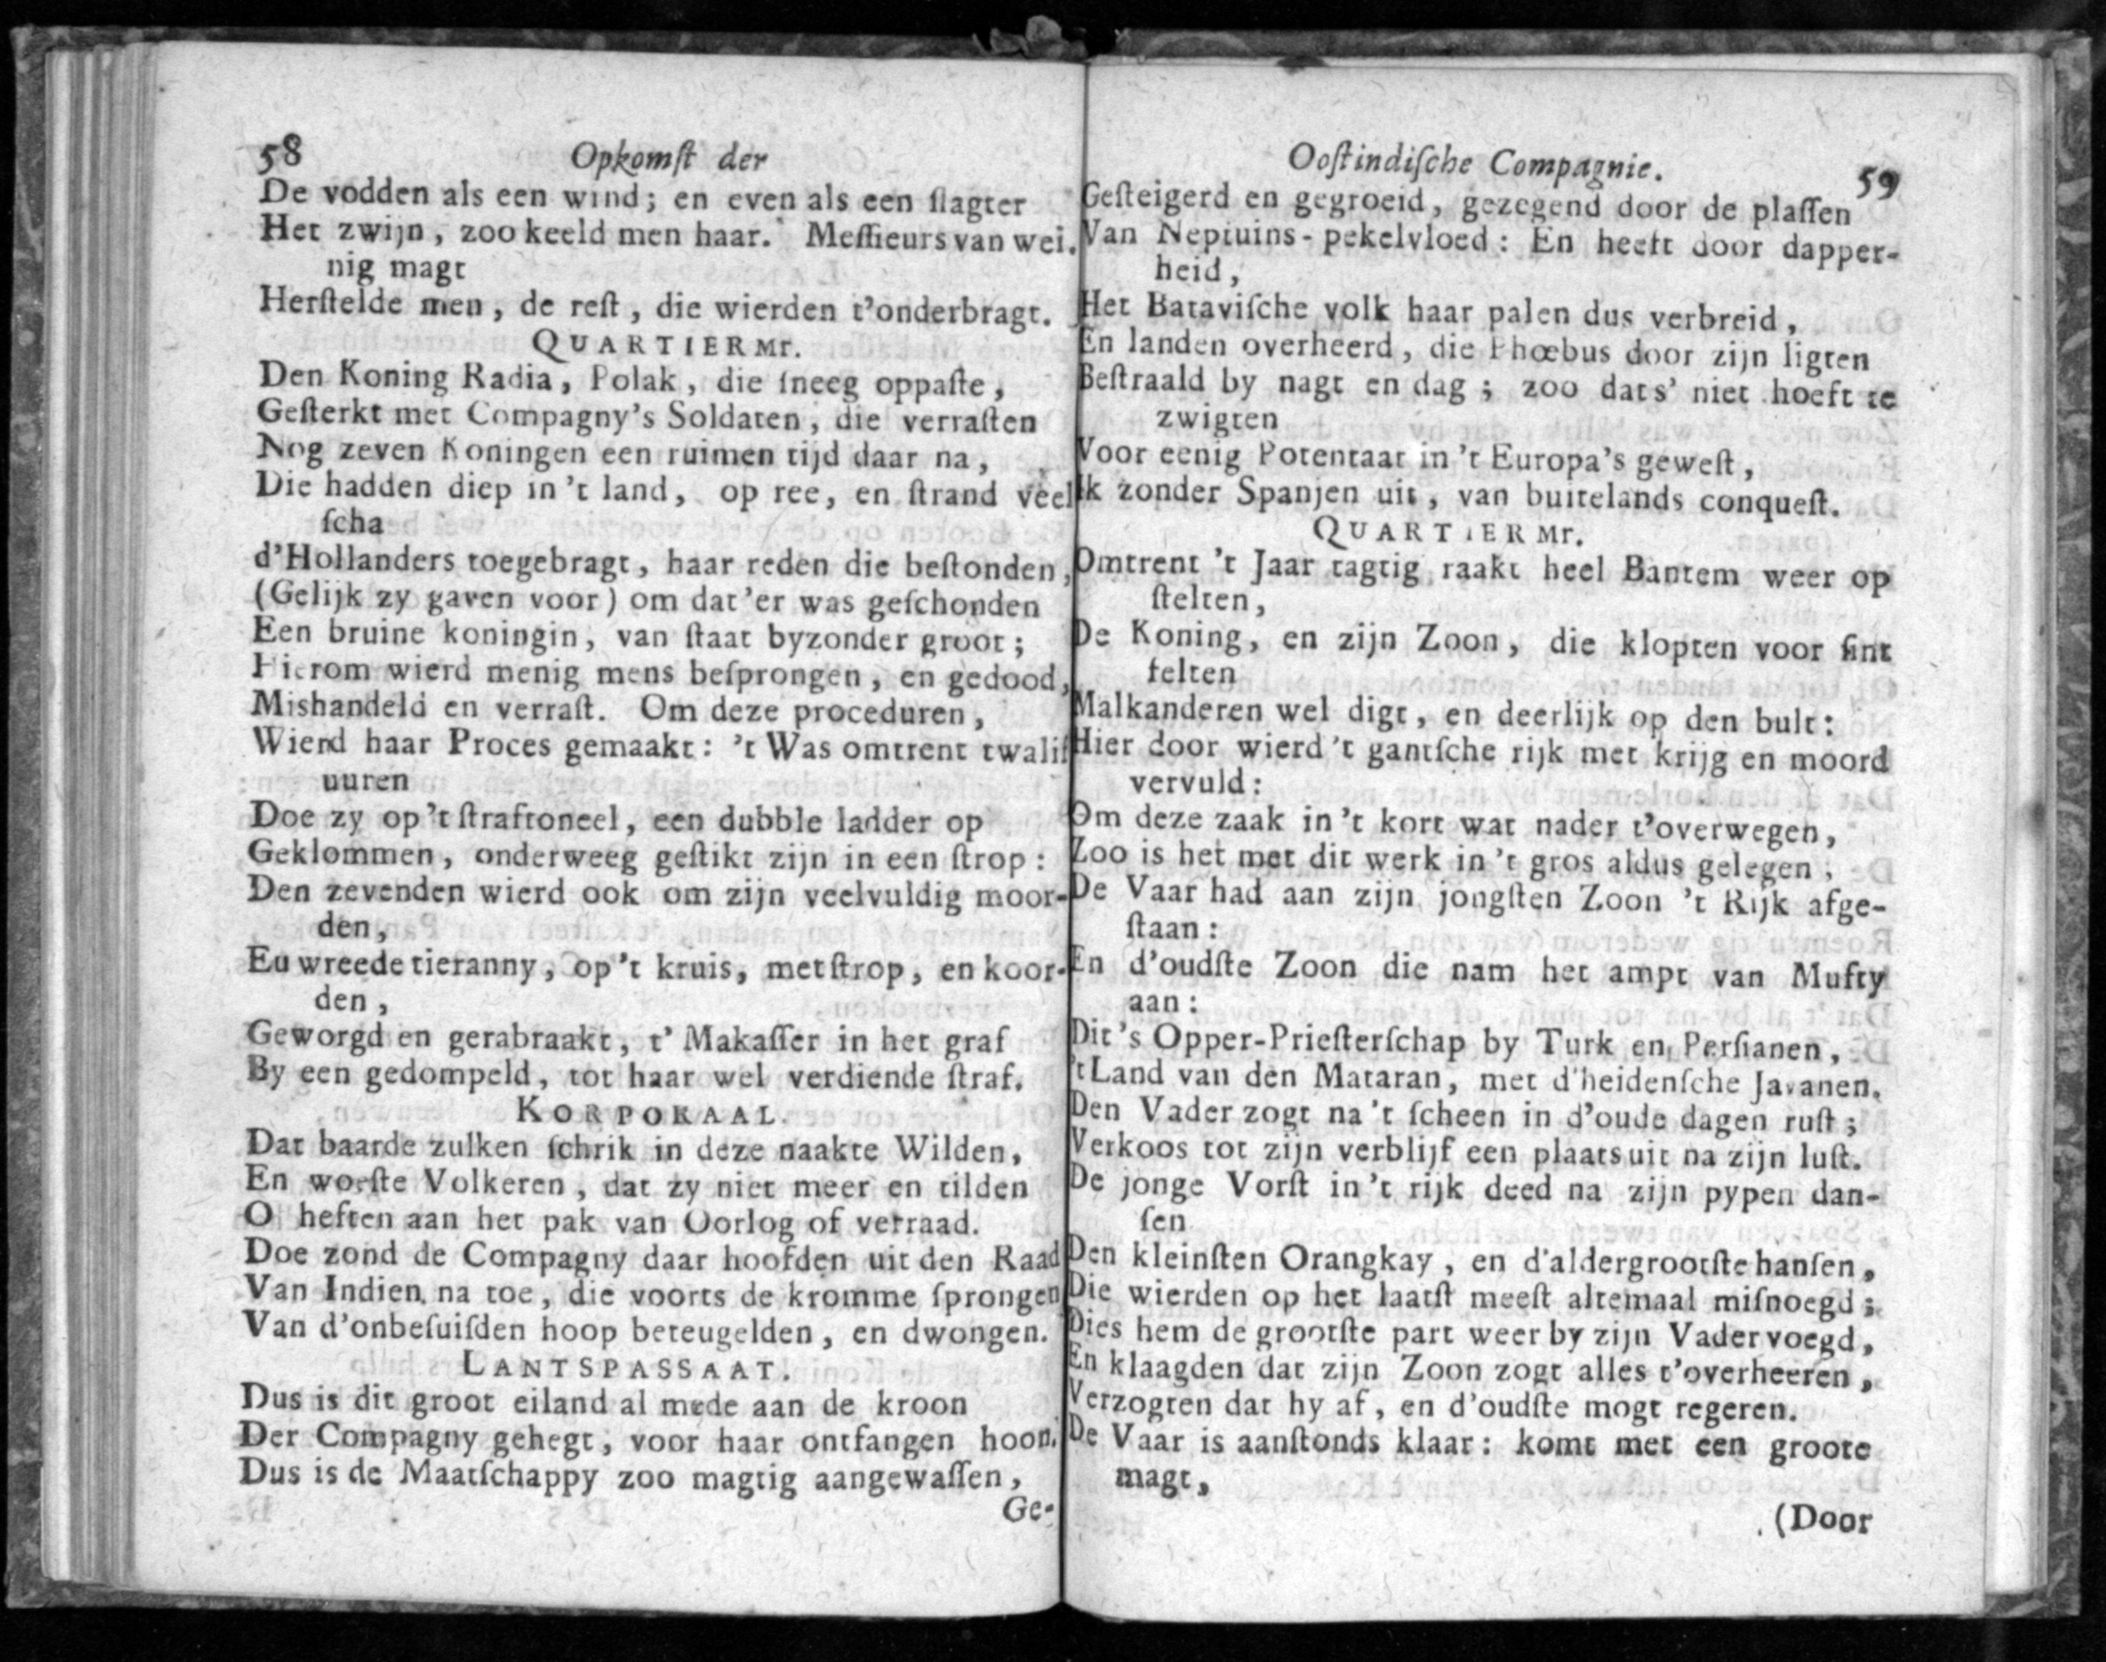 58 Opkomſt der
De vodden als een wind; en even als een ſlagter
Het zwijn, zoo keeld men haar. Meſſieurs van wei-
nig magt
Herſtelde men, de reſt, die wierden t'onderbragt.
QUARTIERMr.
Den Koning Radia, Polak, die ſneeg oppaſte,
Geſterkt met Compagny's Soldaten, die verraſten
Nog zeven Koningen een ruimen tijd daar na,
Die hadden diep in 't land, op ree, en ſtrand veel
ſcha
d'Hollanders toegebragt, haar reden die beſtonden,
(Gelijk zy gaven voor) om dat 'er was geſchonden
Een bruine koningin, van ſtaat byzonder groot;
Hierom wierd menig mens beſprongen, en gedood,
Mishandeld en verraſt. Om deze proceduren,
Wierd haar Proces gemaakt: 't Was omtrent twalif
uuren
Doe zy op 't ſtraftoneel, een dubble ladder op
Geklommen, onderweeg geſtikt zijn in een ſtrop:
Den zevenden wierd ook om zijn veelvuldig moor-
den,
Eu wreede tieranny, op 't kruis, met ſtrop, en koor-
den,
Geworgd en gerabraakt, t' Makaſſer in het graf
By een gedompeld, tot haar wel verdiende ſtraf.
KORPORAAL.
Dat baarde zulken ſchrik in deze naakte Wilden,
En woeſte Volkeren, dat zy niet meer en tilden
O heften aan het pak van Oorlog of verraad.
Doe zond de Compagny daar hoofden uit den Raad
Van Indien na toe, die voorts de kromme ſprongen
Van d'onbeſuiſden hoop beteugelden, en dwongen.
LANTSPASSAAT.
Dus is dit groot eiland al mede aan de kroon
Der Compagny gehegt, voor haar ontfangen hoon.
Dus is de Maatſchappy zoo magtig aangewaſſen,
Ge-
Ooſtindiſche Compagnie. 59
Geſteigerd en gegroeid, gezegend door de plaſſen
Van Neptuins-pekelvloed: En heeft door dapper-
heid,
Het Bataviſche volk haar palen dus verbreid,
En landen overheerd, die Phœbus door zijn ligten
Beſtraald by nagt en dag; zoo dat s' niet hoeft te
zwigten
Voor eenig Potentaat in 't Europa's geweſt,
Ik zonder Spanjen uit, van buitelands conqueſt.
QUARTIERMr.
Omtrent 't Jaar tagtig raakt heel Bantem weer op
ſtelten,
De Koning, en zijn Zoon, die klopten voor ſint
felten
Malkanderen wel digt, en deerlijk op den bult:
Hier door wierd 't gantſche rijk met krijg en moord
vervuld:
Om deze zaak in 't kort wat nader t'overwegen,
Zoo is het met dit werk in 't gros aldus gelegen;
De Vaar had aan zijn jongſten Zoon 't Rijk afge-
ſtaan:
En d'oudſte Zoon die nam het ampt van Mufty
aan:
Dit 's Opper-Prieſterſchap by Turk en Perſianen,
't Land van den Mataran, met d'heidenſche Javanen.
Den Vader zogt na 't ſcheen in d'oude dagen ruſt;
Verkoos tot zijn verblijf een plaats uit na zijn luſt.
De jonge Vorſt in 't rijk deed na zijn pypen dan-
ſen
Den kleinſten Orangkay, en d'aldergrootſte hanſen,
Die wierden op het laatſt meeſt altemaal miſnoegd;
Dies hem de grootſte part weer by zijn Vader voegd,
En klaagden dat zijn Zoon zogt alles t'overheeren,
Verzogten dat hy af, en d'oudſte mogt regeren.
De Vaar is aanſtonds klaar: komt met een groote
magt,
(Door